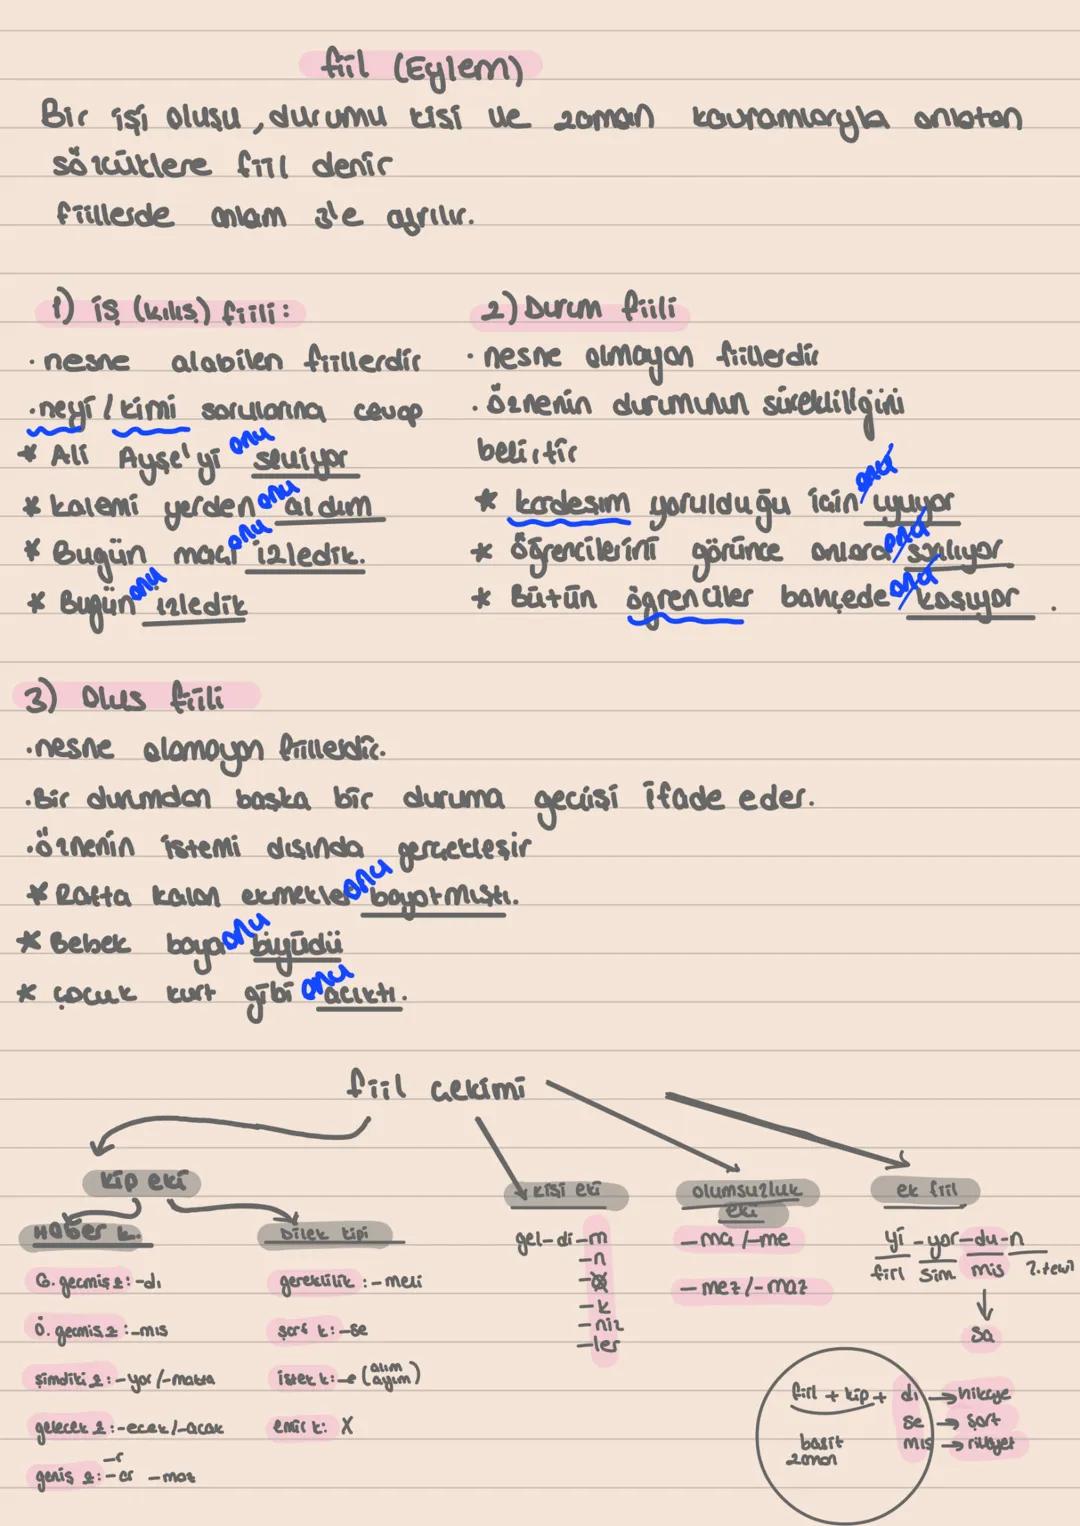 fiil (Eylem)
Bir işi oluşu, durumu kişi ve zaman kavramlarıyla anlatan
sözcüklere fiil denir
fiillerde anlam 3'e ayrılır.
1) iş (kılış) fiili:
· nesne alabilen fiillerdir
· neyi / kimi sorularına cevap
* Ali Ayşe'yi onu seviyor
* kalemi yerden onu aldım
* Bugün maçı onu izledik.
* Bugün onu izledik
2) Durum fiili
· nesne almayan fiillerdir
· öznenin durumunun sürekliliğini
belirtir
* kardeşim yorulduğu için onu uyuyor
* öğrencilerini görünce onlara onu
* Bütün öğrenciler bahçede onu koşuyor.
3) Oluş fiili
· nesne alamayan fiillerdir.
· Bir durumdan başka bir duruma geçişi ifade eder.
· öznenin istemi dışında gerçekleşir
* Rafta kalan ekmekler onu bayatmıştı.
* Bebek baya onu büyüdü
* çocuk kurt gibi onu acıktı.
fiil çekimi
kip eki
Haber k.
G. geçmiş z: -dı
Ö. geçmiş z: -mış
şimdiki z: -yor /-makta
gelecek z: -ecek/-acak
-r
geniş z: -er -maz
Dilek kipi
gereklilik: -meli
şart k: -se
istek k: -e (alım
ayım)
emir k: X
kişi eki
gel-di-m
-n
-Ø
-k
-niz
-ler
olumsuzluk
eki
-ma /-me
-mez /-maz
ek fiil
yi -yor-du-n
fiil şim mış 2.tekil
sa
fiil + kip + dı → hikaye
se → şart
mış → rivayet
basit
zaman